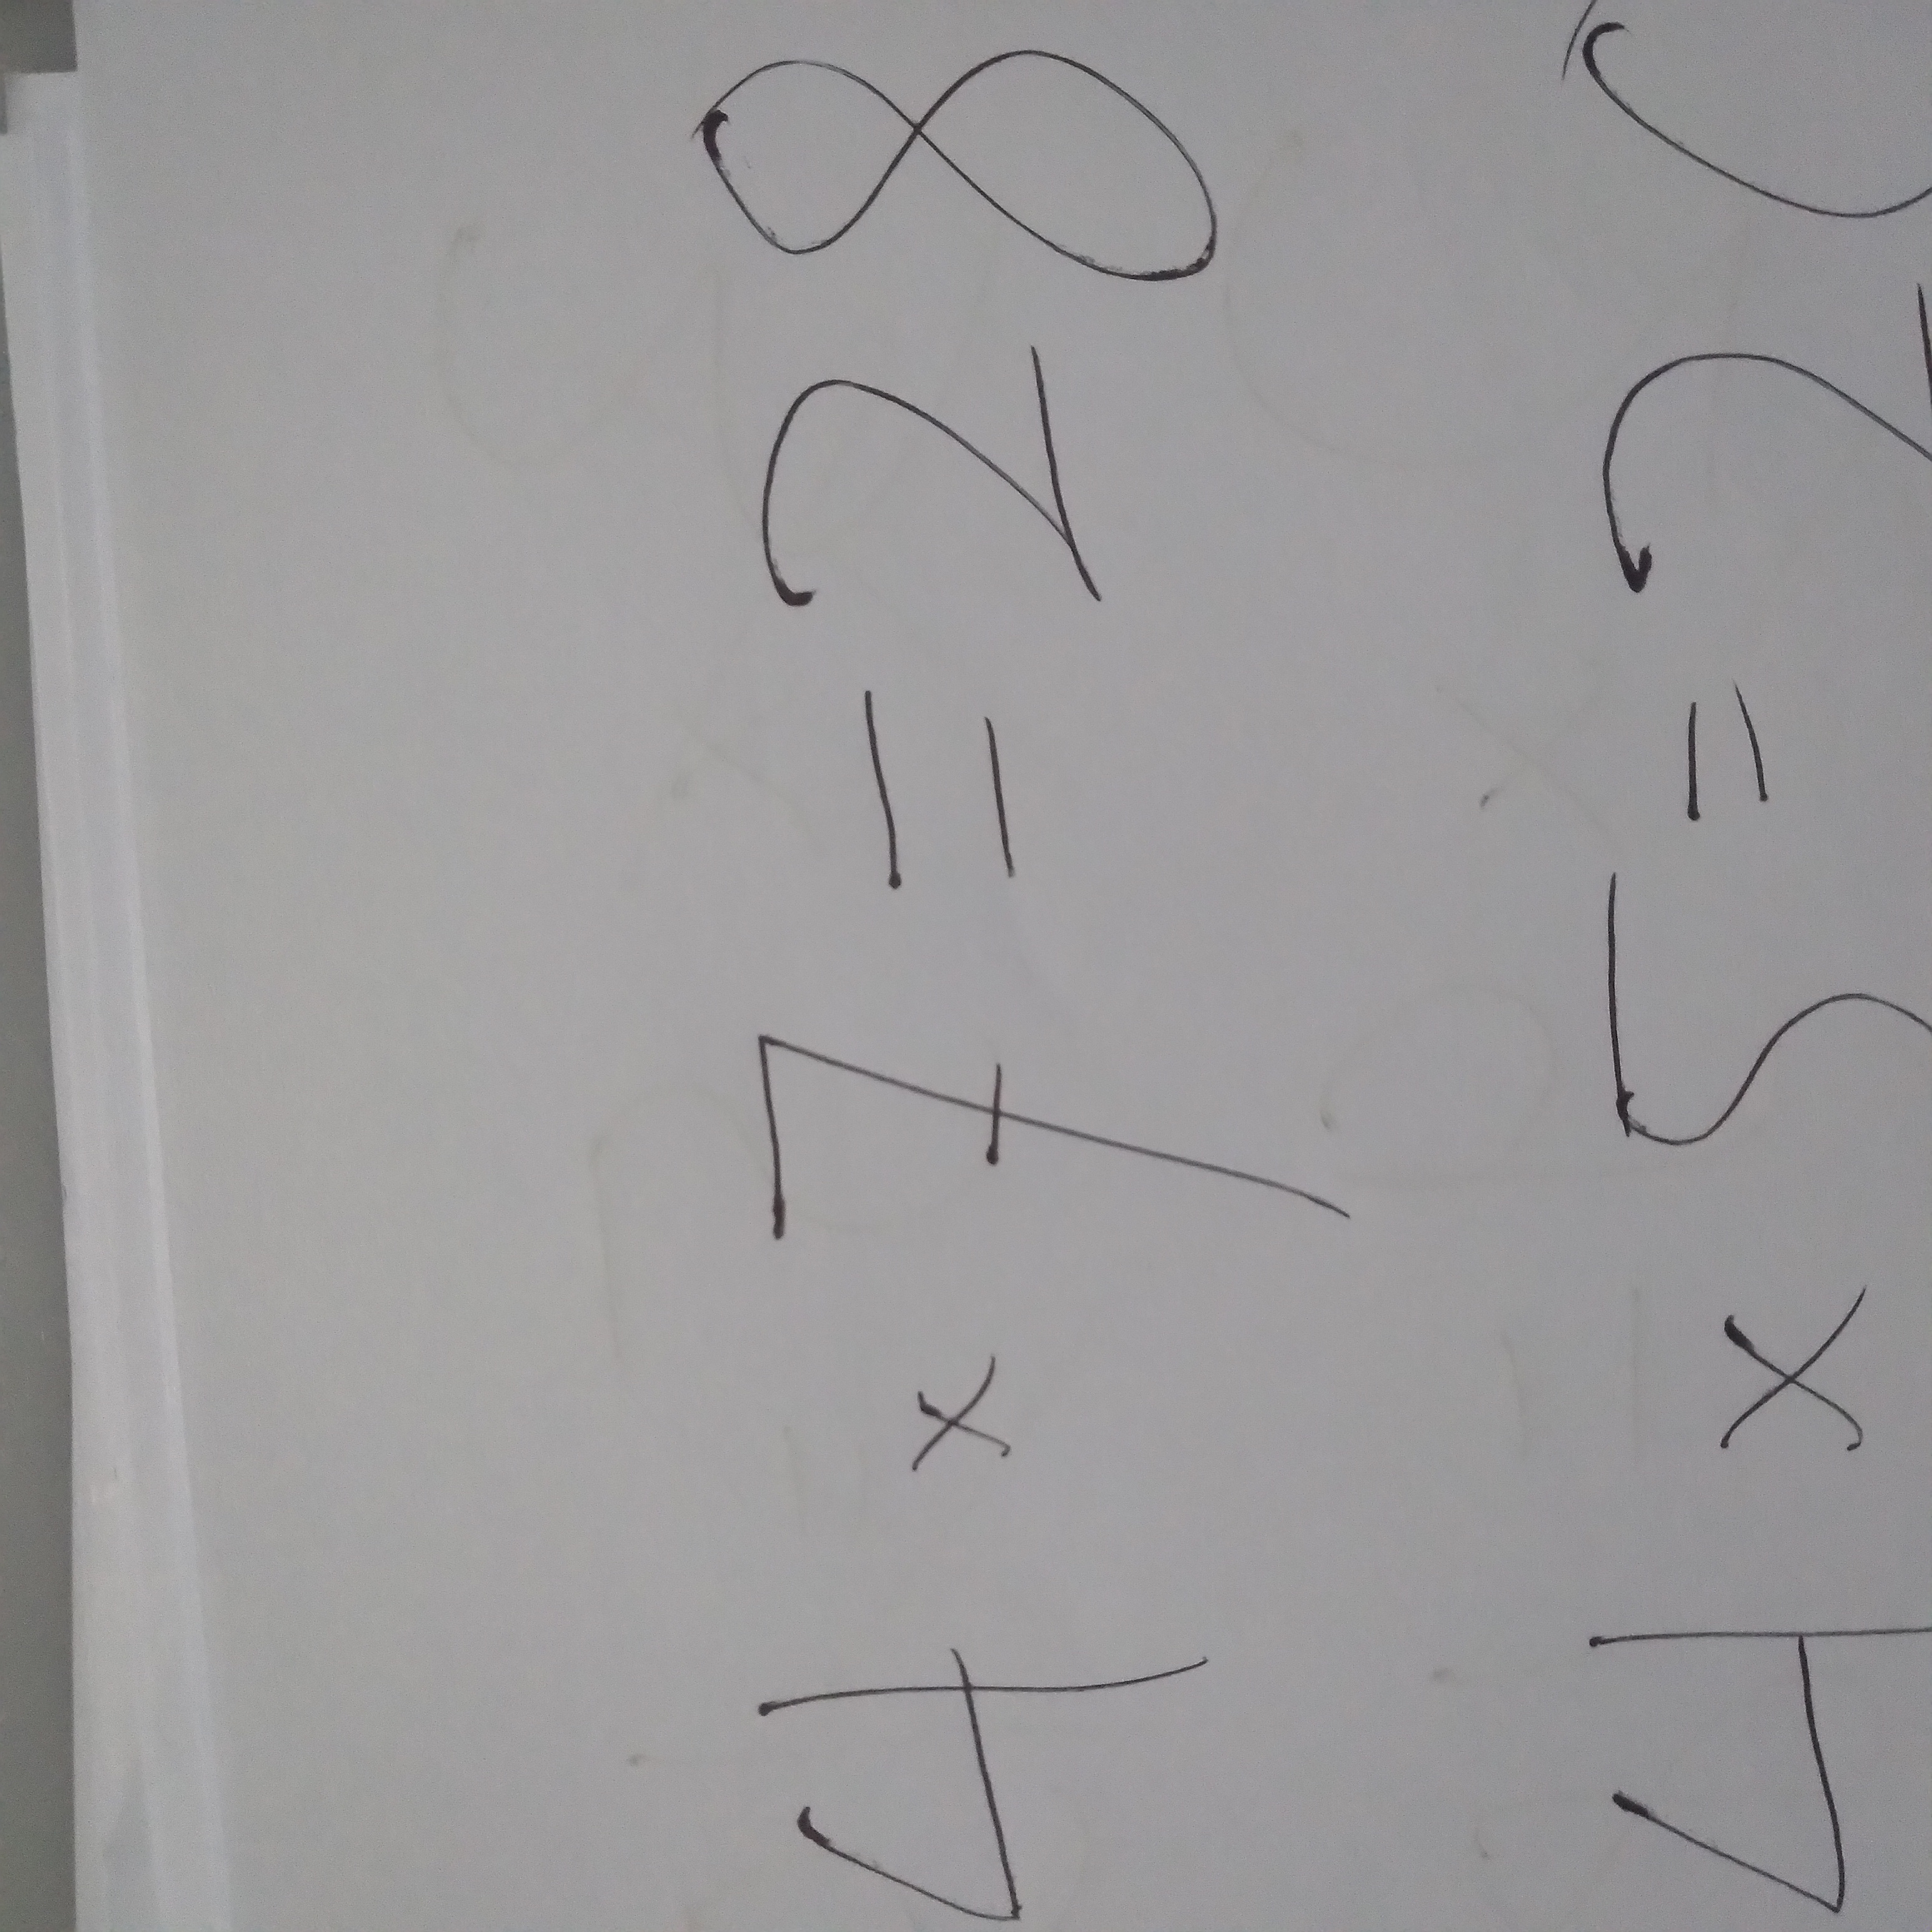 4 x 7 = 28
4 x 5 = 20